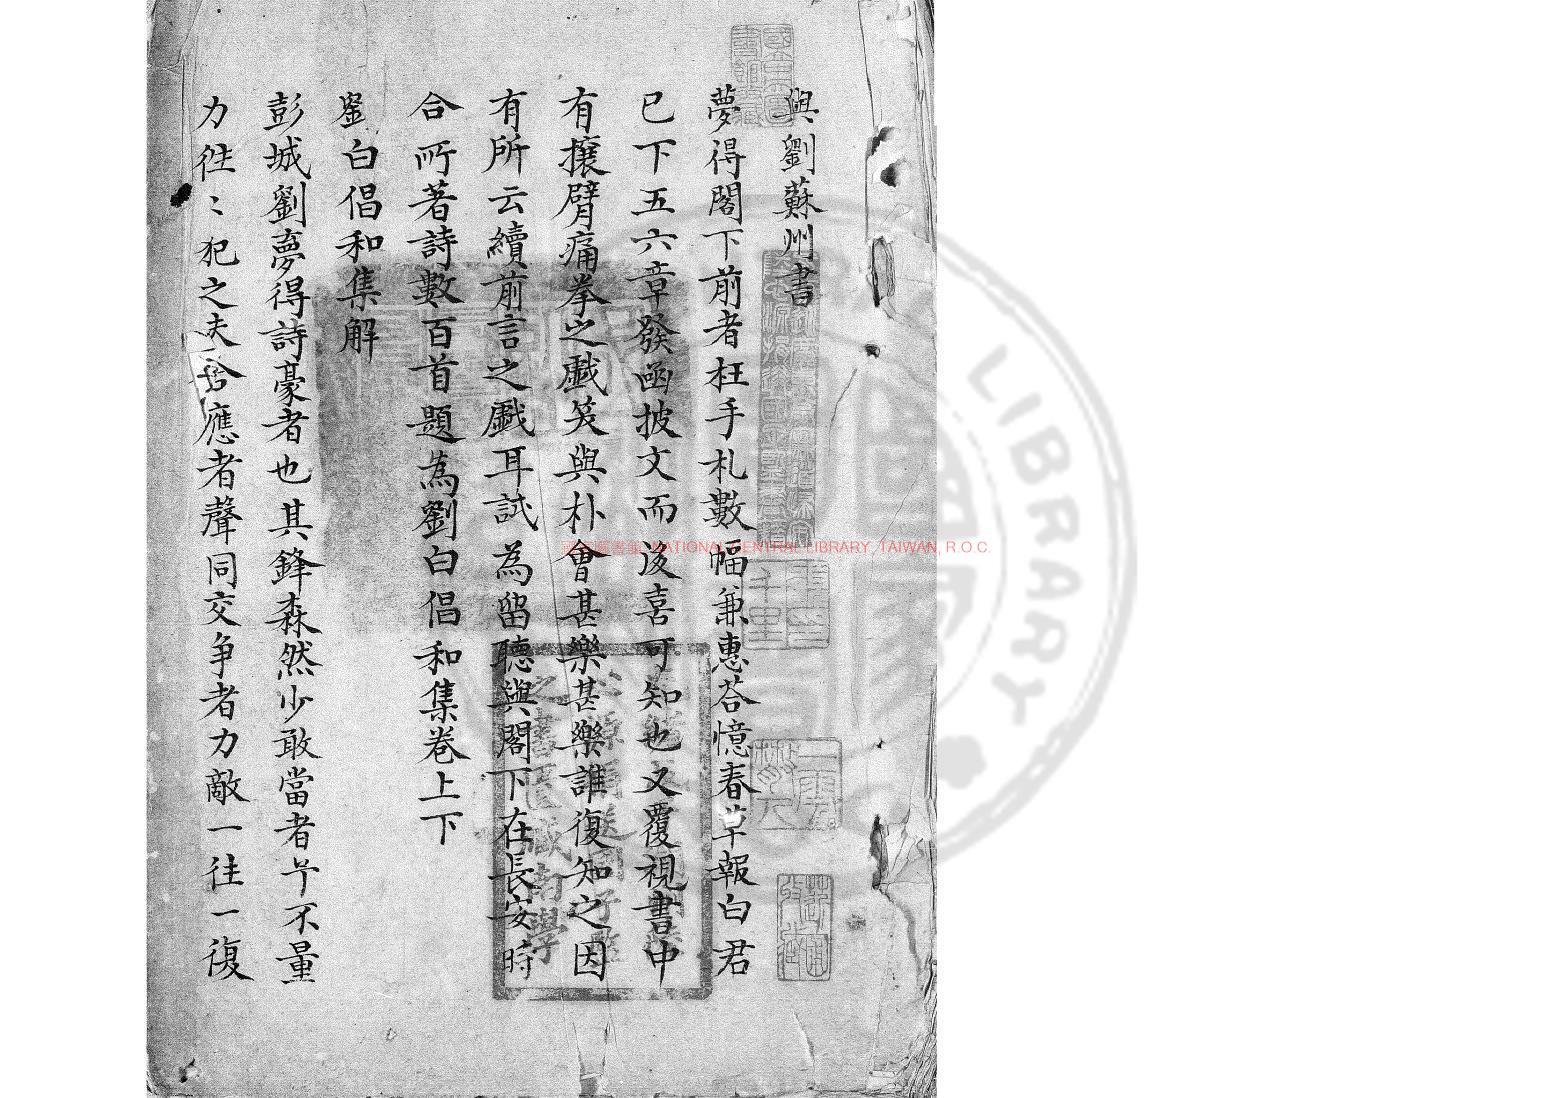 與劉蘇州書
夢得閣下前者枉手札數幅兼惠荅憶春草報白君
已下五六章發函披文而後喜可知也又覆視書中
有攘臂痛拳之戲笑與抃會甚樂甚樂誰復知之因
有所云續前言之戲耳試為留聽與閣下在長安時
合所著詩數百首題為劉白倡和集卷上下
劉白倡和集解
彭城劉夢得詩豪者也其鋒森然少敢當者予不量
力往〻犯之夫合應者聲同交争者力敵一往一復
國家圖書館 NATIONAL CENTRAL LIBRARY, TAIWAN, R.O.C.
LIBRARY